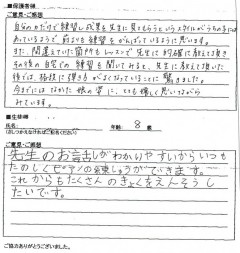 ■保護者様
ご意見・ご感想
自分の力だけで練習し成果を先生に見てもらうというスタイルがうちの子には
あっているようで 前よりも練習をがんばっているように思います。
また、間違えていた箇所もレッスンで先生に的確に教えて頂き
その後の自宅での練習を聞いてみると、先生に教えて頂いた
後では、格段に弾き方がよくなっていることに驚きました。
今までにはなかった娘の姿に、とても嬉しく思いながら
みています。
■生徒様
氏名:
年齢: 8 歳
(さしつかえなければご記名ください)
ご意見・ご感想
先生のお話しがわかりやすいからいつも
たのしくピアノの練しゅうができます。
これからもたくさんのきょくをえんそうし
たいです。
ご協力ありがとうございました。